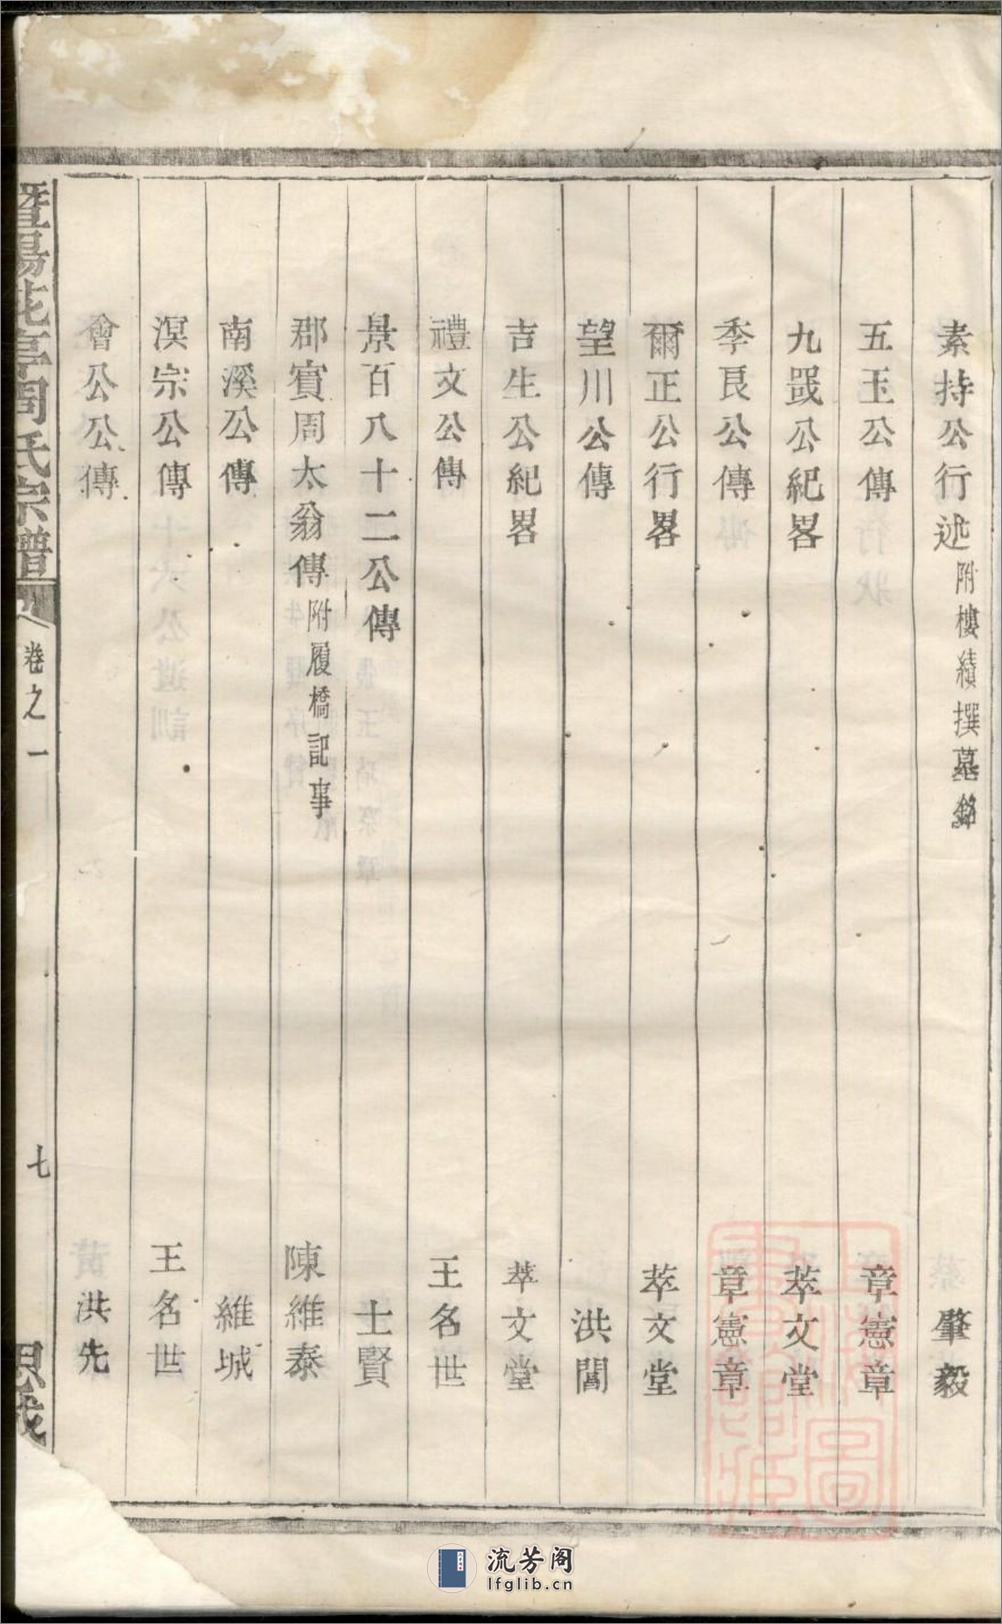 素持公行述附樓績撰墓銘 肇毅
五玉公傳 章憲章
九戜公紀畧 萃文堂
季良公傳 章憲章
爾正公行畧 萃文堂
望川公傳 洪闓
吉生公紀畧 萃文堂
禮文公傳 王名世
景百八十二公傳 士賢
郡賓周太翁傳附履橋記事 陳維泰
南溪公傳 維城
溟宗公傳 王名世
會公公傳 黃洪先
暨陽花亭周氏宗譜 卷之一 七
流芳阁
lfglib.cn